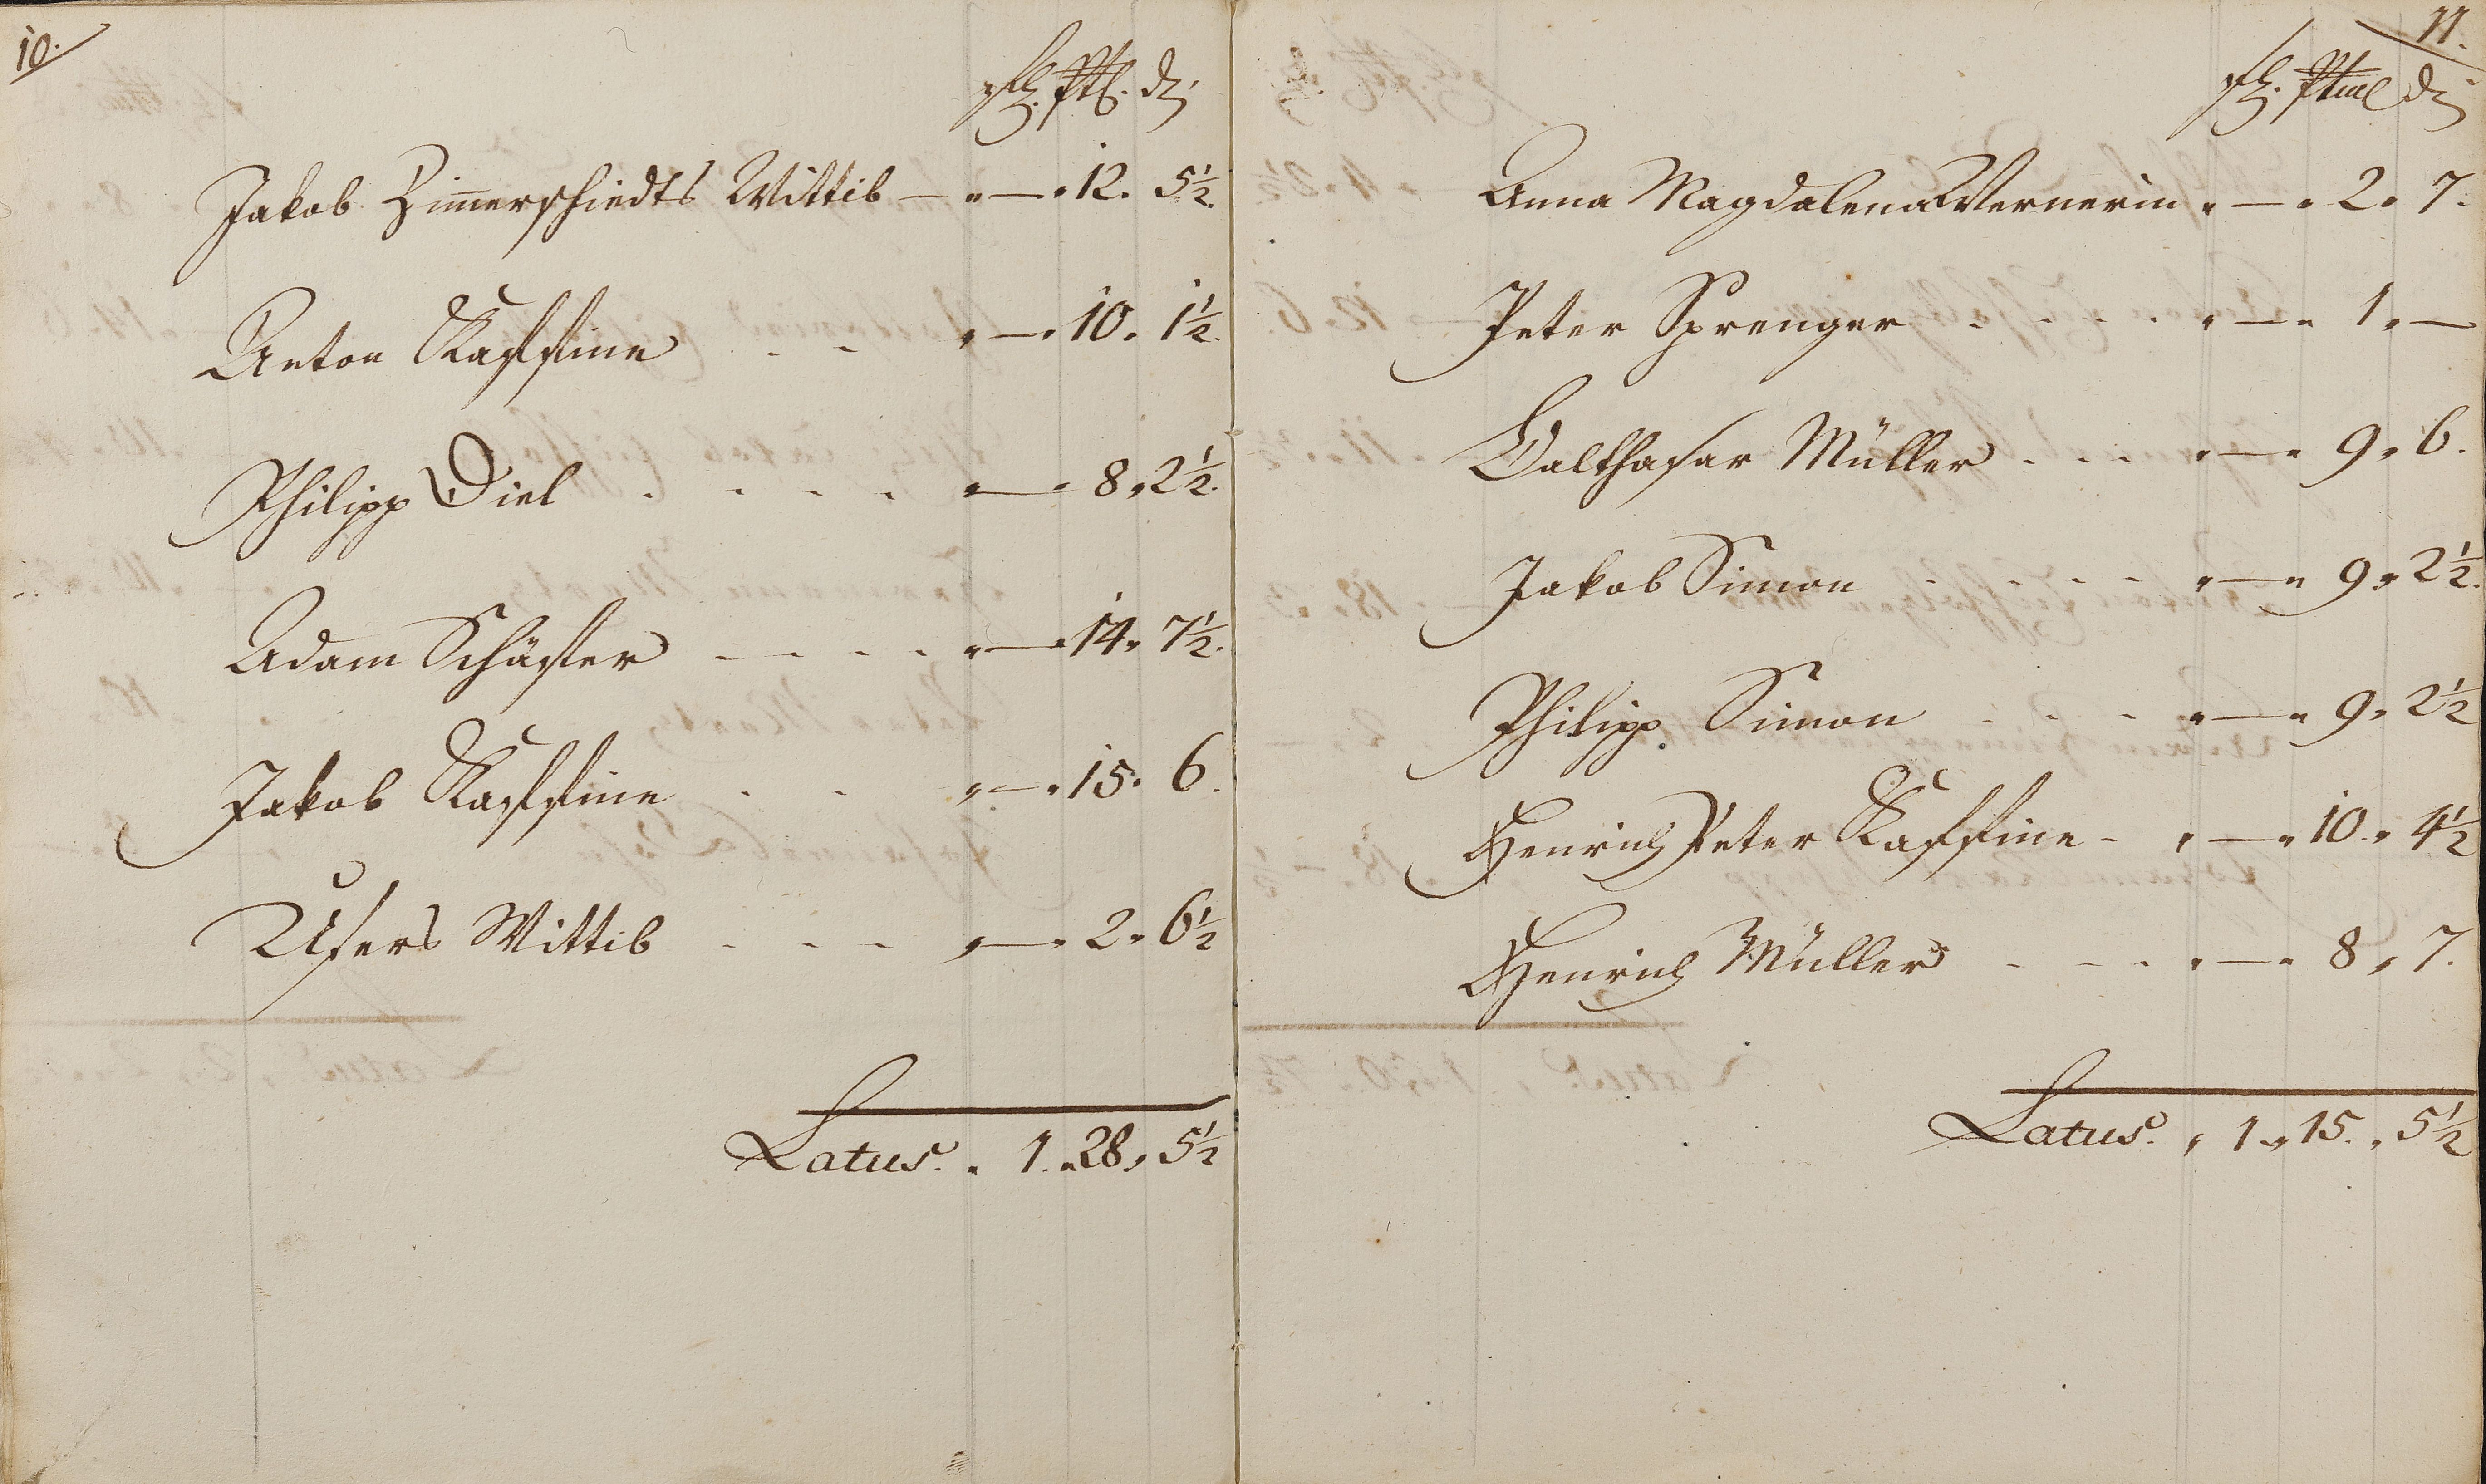 10.
rfl. Ptl. d
Jakob Zimerschiedts Wittib — " — " 12. 5½.
Anton Kaffine - - " — " 10. 1½.
Philipp Diel - - - - " — " 8 " 2½.
Adam Schäffer - - - - " — " 14 " 7½.
Jakob Kaffine - - " — " 15. 6.
Wittib - - - " — " 2 " 6½
Latus. " 1. " 28 " 5½
11.
rfl. Ptml d
Anna Magdalena Wernerin " — " 2 " 7.
Peter Sprenger - - - - " — " 1 " —
Balthasar Müller - - - " — " 9 " 6.
Jakob Simon - - - - " — " 9 " 2½.
Philipp Simon - - - " — " 9 " 2½
Henrich Peter Kaffine - " — " 10. " 4½
Henrich Müller - - - " — " 8 " 7.
Latus. " 1 " 15. " 5½